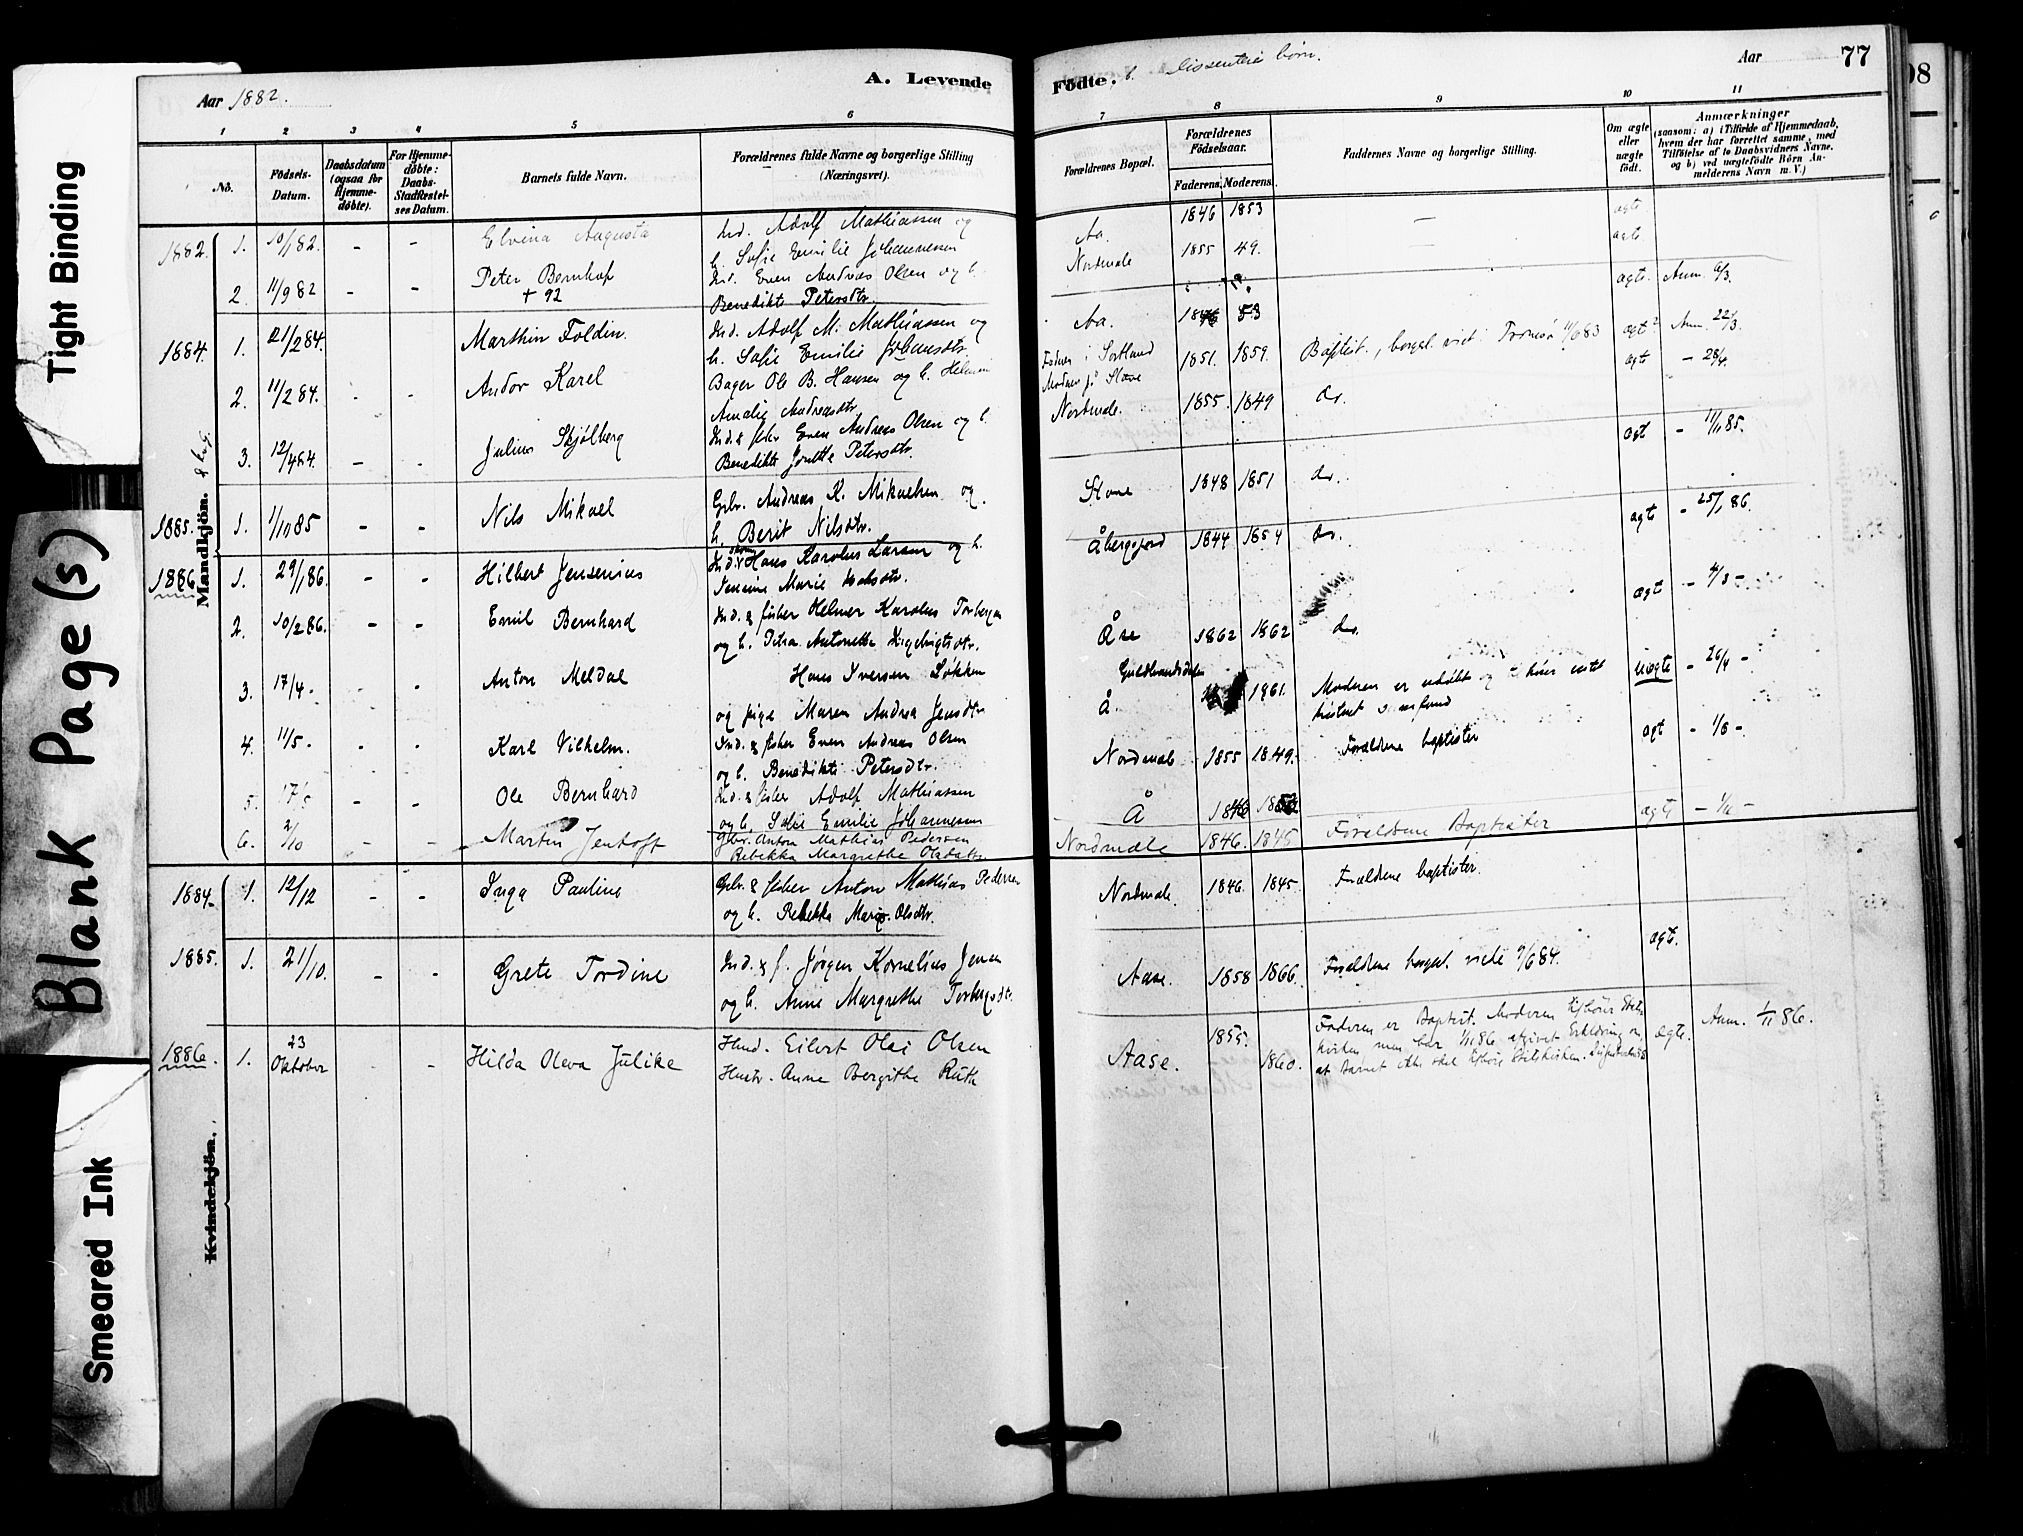 Tight Binding
Blank Page(s)
Smeared Ink
Aar 1882.
A. Levende
Fødte. b. Dissenter børn.
Aar
77
98
1 2 3 4 5 6 7 8 9 10 11
No.
Fødsels-
Datum.
Daabsdatum
(ogsaa for
Hjemme-
døbte).
For Hjemme-
døbte:
Daabs-
Stadfæstel-
ses Datum.
Barnets fulde Navn.
Forældrenes fulde Navne og borgerlige Stilling
(Næringsvei).
Forældrenes Bopæl.
Forældrenes
Fødselsaar.
Faderens. Moderens.
Faddernes Navne og borgerlige Stilling.
Om ægte
eller
uægte
født.
Anmærkninger
(saasom: a) i Tilfælde af Hjemmedaab,
hvem der har forrettet samme, med
Tilføielse af to Daabsvidners Navne.
og b) ved uægtefødte Børn An-
melderens Navn m. V.)
Mandkjøn.
Kvindekjøn.
1882. 1. 10/1 82. - - Elvina Augusta Ind. Adolf Mathiassen og Aa. 1846 1853 — ægte
h. Sofie Emilie Johannesen
2. 11/9 82 - - Peter Bernhof Ind. Even Andreas Olsen og h. Nordmele 1855 49. — ægte
+ 92 Benedikte Petersdtr.
1884. 1. 21/2 84. Marthin Foldin. Ind. Adolf M. Mathiassen og Aa. 53 ægte. Anm. 6/3.
h. Sofie Emilie Johansdtr.
2. 11/2 84. Andor Karel Bager Ole B. Hansen og h. Fader i Sortland 1851. 1859. Baptist., borgel. viet Tromsø 11/6 83 ægte? Anm. 22/3.
Amalie Andreasdtr. Moder på Slave
3. 12/4 84. - - Julius Skjølberg Ind. & fisker Even Andreas Olsen og h. Nordmele. 1855. 1849 do. ægte - 28/4
Benedikte Petersdtr.
1885. 1. 1/11 85 - - Nils Mikael Gbr. Andreas K. Mikaelsen og Slave 1848 1851 do. ægt - 11/11 85.
h. Berit Nilsdtr.
1886 1. 29/1 86. - - Hilbert Jensenius Hans Karolus Larsen og h. Åbergsjord 1844 1854 do. ægt - 25/1 86.
Jensine Marie
2. 10/2 86. - - Emil Bernhard Ind. & fisker Helmer Karolus Torbergsen Åse 1862 1862 do. ægt - 4/3 -
og h. Petra Antonette
3. 17/4 - - - Anton Meldal Hans Iversen Løkken Guldbrandsdalen
og pige Maren Andrea Jensdtr. Å. 1861. Moderen er udøbt og uægte - 26/4 -
4. 11/5 - - - Karl Vilhelm. Ind. & fisker Even Andreas Olsen Nordmele 1855 1849. Forældrene baptister ægt - 1/6 -
og h. Benedikte Petersdtr.
5. 17/5 - - Ole Bernhard Ind. & fisker Adolf Mathiassen Å 1846
og h. Sofie Emilie Johannesen
6. 2/10 - - Martin Jentoft Gbr. Anton Mathias Pedersen Nordmele 1846. 1845 Forældrene Baptister ægte - 1/11 -
Rebekka Margrethe Olsdatter
1884. 1. 12/12 - - Inga Pauline Gbr. & fisker Anton Mathias Pedersen Nordmele. 1846. 1845. Forældrene baptister.
og h. Rebekka Marg. Olsdtr.
1885. 1. 21/10. - - Grete Tordine Ind. & f. Jørgen Kornelius Jensen Aase. 1858 1866. Forældrene borgerl. viede 9/6 84. ægte.
og h. Anne Margrethe Torbergsdtr.
1886. 1. 23 Oktober - Hilda Oleva Julike Husd. Eilert Olai Olsen Aase. 1855. 1860. Faderen er Baptist. Moderen tilhører Stats- ægte. Anm. 1/11 86.
Hustr. Anne Bergithe Ruth kirken men har 1/11 86 afgivet Erklæring om
at Barnet ikke skal tilhøre Statskirken.